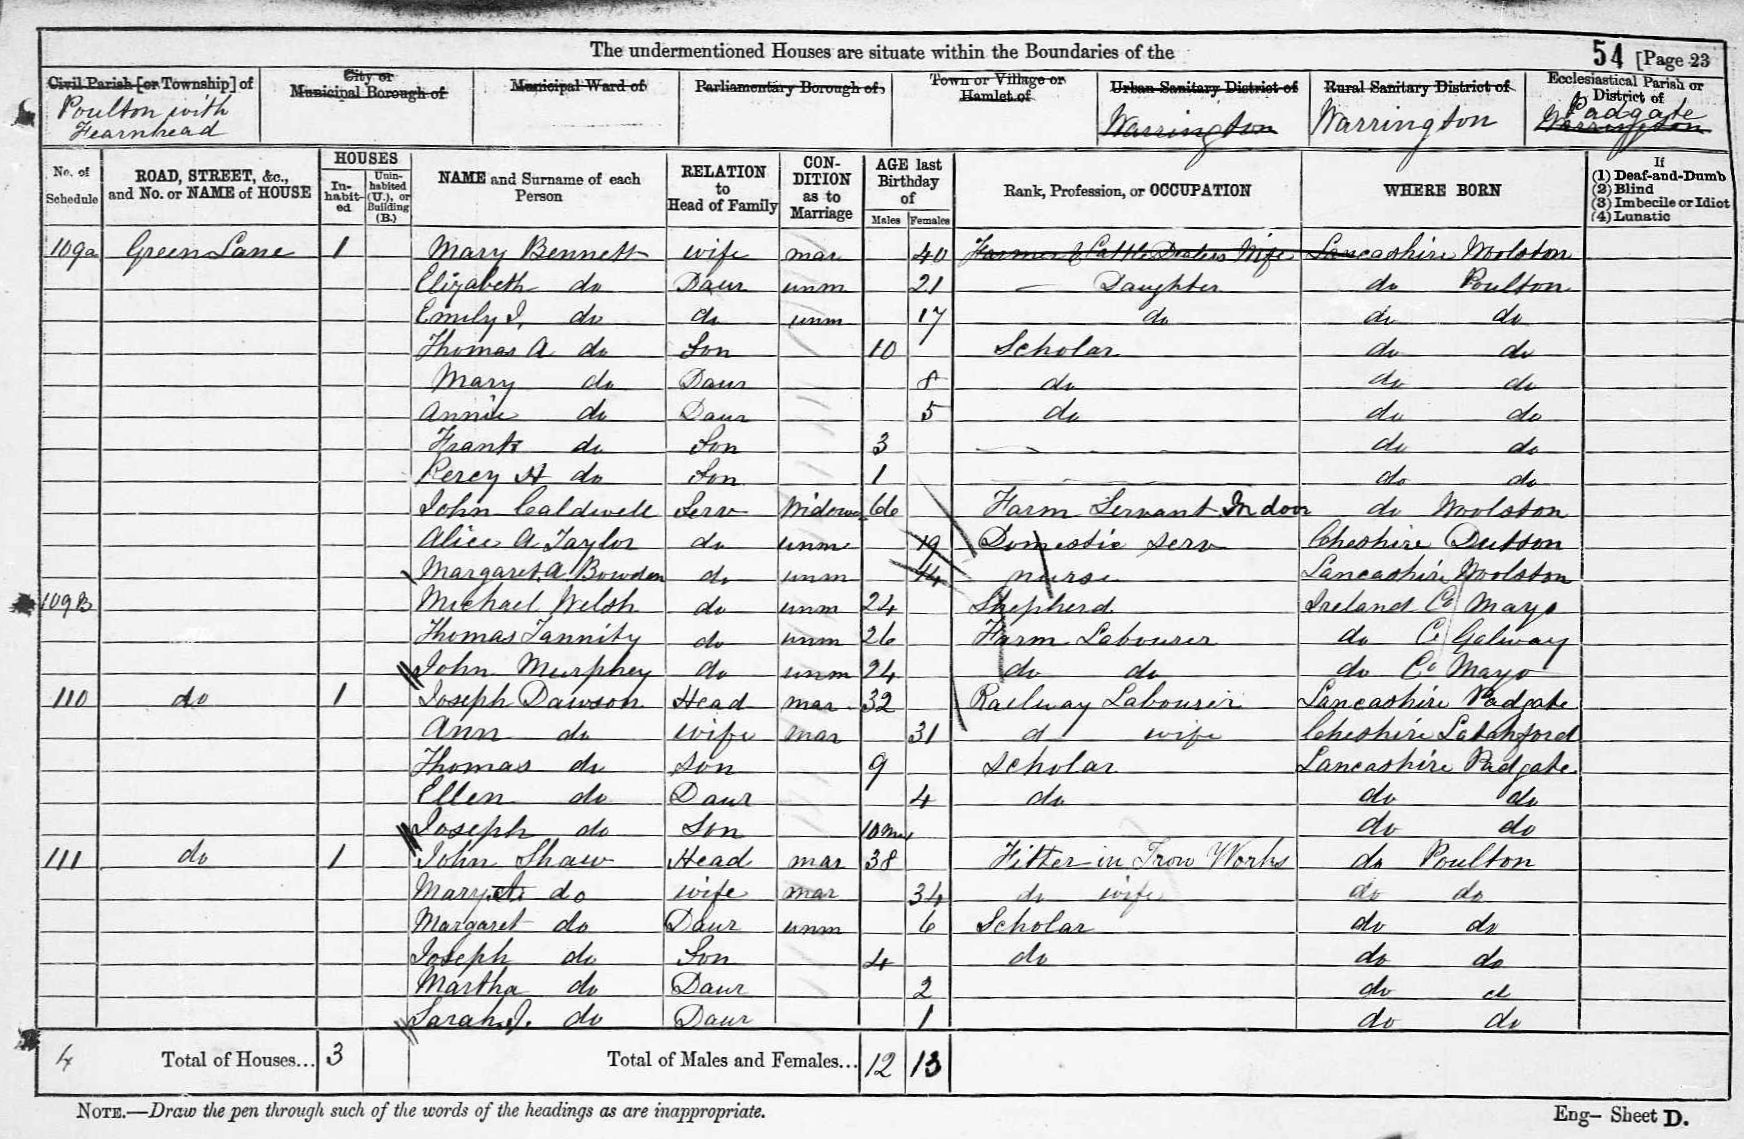 The undermentioned Houses are situate within the Boundaries of the 54 [Page 23
Civil Parish [or Township] of City or Municipal Borough of Municipal Ward of Parliamentary Borough of, Town or Village or Hamlet of Urban Sanitary District of Rural Sanitary District of Ecclesiastical Parish or District of
Poulton with Fearnhead Warrington Warrington Padgate Warrington
No. of Schedule ROAD, STREET, &c., and No. or NAME of HOUSE HOUSES In-habit-ed Unin-habited (U.), or Building (B.) NAME and Surname of each Person RELATION to Head of Family CON-DITION as to Marriage AGE last Birthday of Males Females Rank, Profession, or OCCUPATION WHERE BORN If (1) Deaf-and-Dumb (2) Blind (3) Imbecile or Idiot (4) Lunatic
109a Green Lane 1 Mary Bennett wife mar 40 Farmer & Cattle Dealers Wife Lancashire Woolston
Elizabeth do Daur unm 21 Daughter do Poulton
Emily J. do do unm 17 do do do
Thomas A do Son 10 Scholar do do
Mary do Daur 8 do do do
Annie do Daur 5 do do do
Frank do Son 3 do do
Percy H do Son 1 do do
John Caldwell Serv Widower 66 Farm Servant Indoor do Woolston
Alice A Taylor do unm 19 Domestic Serv Cheshire Dutton
Margaret A Bowden do unm 14 nurse Lancashire Woolston
109B Michael Welsh do unm 24 Shepherd Ireland Co Mayo
Thomas Tannity do unm 26 Farm Labourer do Co Galway
John Murphey do unm 24 do do do Co Mayo
110 do 1 Joseph Dawson Head mar 32 Railway Labourer Lancashire Padgate
Ann do wife mar 31 d wife Cheshire Latchford
Thomas do Son 9 Scholar Lancashire Padgate
Ellen do Daur 4 do do do
Joseph do Son 10 Mo do do
111 do 1 John Shaw Head mar 38 Fitter in Iron Works do Poulton
Mary do wife mar 34 do wife do do
Margaret do Daur unm 6 Scholar do do
Joseph do Son 4 do do do
Martha do Daur 2 do d
Sarah J. do Daur 1 do do
4 Total of Houses... 3 Total of Males and Females... 12 13
NOTE.—Draw the pen through such of the words of the headings as are inappropriate. Eng– Sheet D.